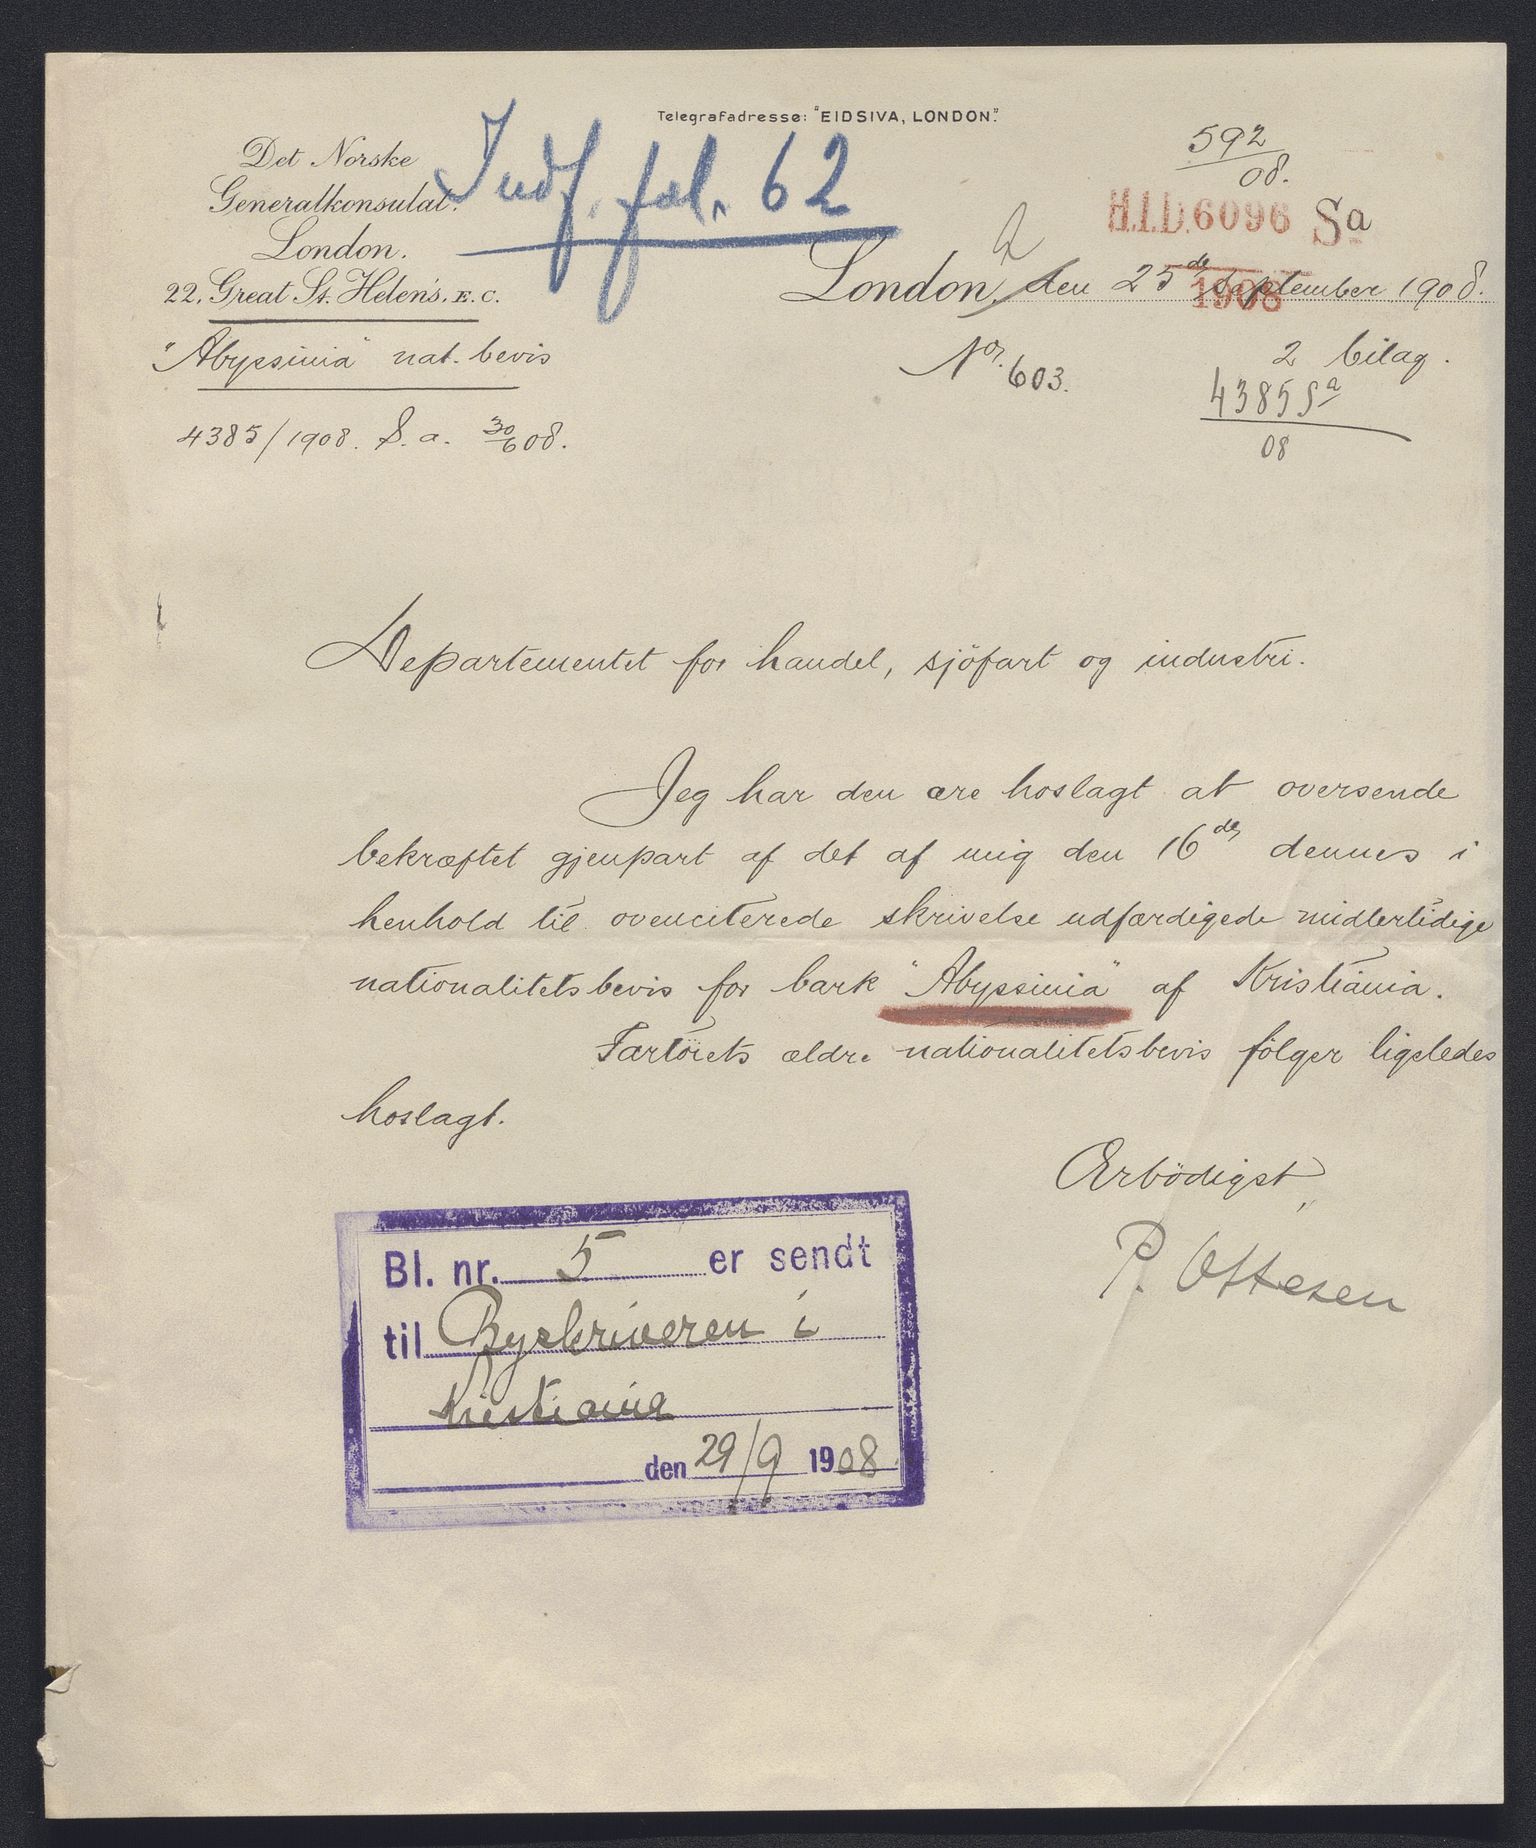 Telegrafadresse: "EIDSIVA, LONDON."
Det Norske
Generalkonsulat.
London.
22, Great St. Helen's. E.C.
Indf. fol. 62
592
08.
H.I.D. 6096 Sa
1908
London, den 25de September 1908.
"Abyssinia" nat. bevis
4385/1908. S. a. 30/6 08.
No. 603.
2 bilag.
4385 Sa
08
Departementet for handel, sjöfart og industri.
Jeg har den ære hoslagt at oversende
bekræftet gjenpart af det af mig den 16de dennes i
henhold til ovenciterede skrivelse udfærdigede midlertidige
nationalitetsbevis for bark "Abyssinia" af Kristiania.
Fartöiets ældre nationalitetsbevis fölger ligeledes
hoslagt.
Ærbödigst
P. Ottesen
Bl. nr. 5 er sendt
til Byskriveren i
Kristiania
den 29/9 1908